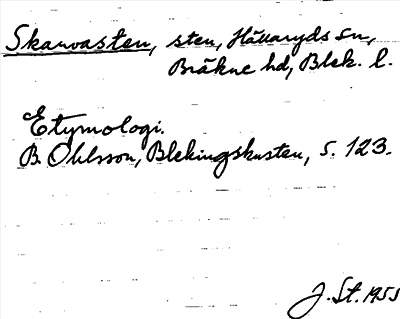 Skarvasten, sten, Hällaryds sn,
Bräkne hd, Blek. l.
Etymologi.
B. Ohlsson, Blekingskusten, s. 123.
J. St. 1955